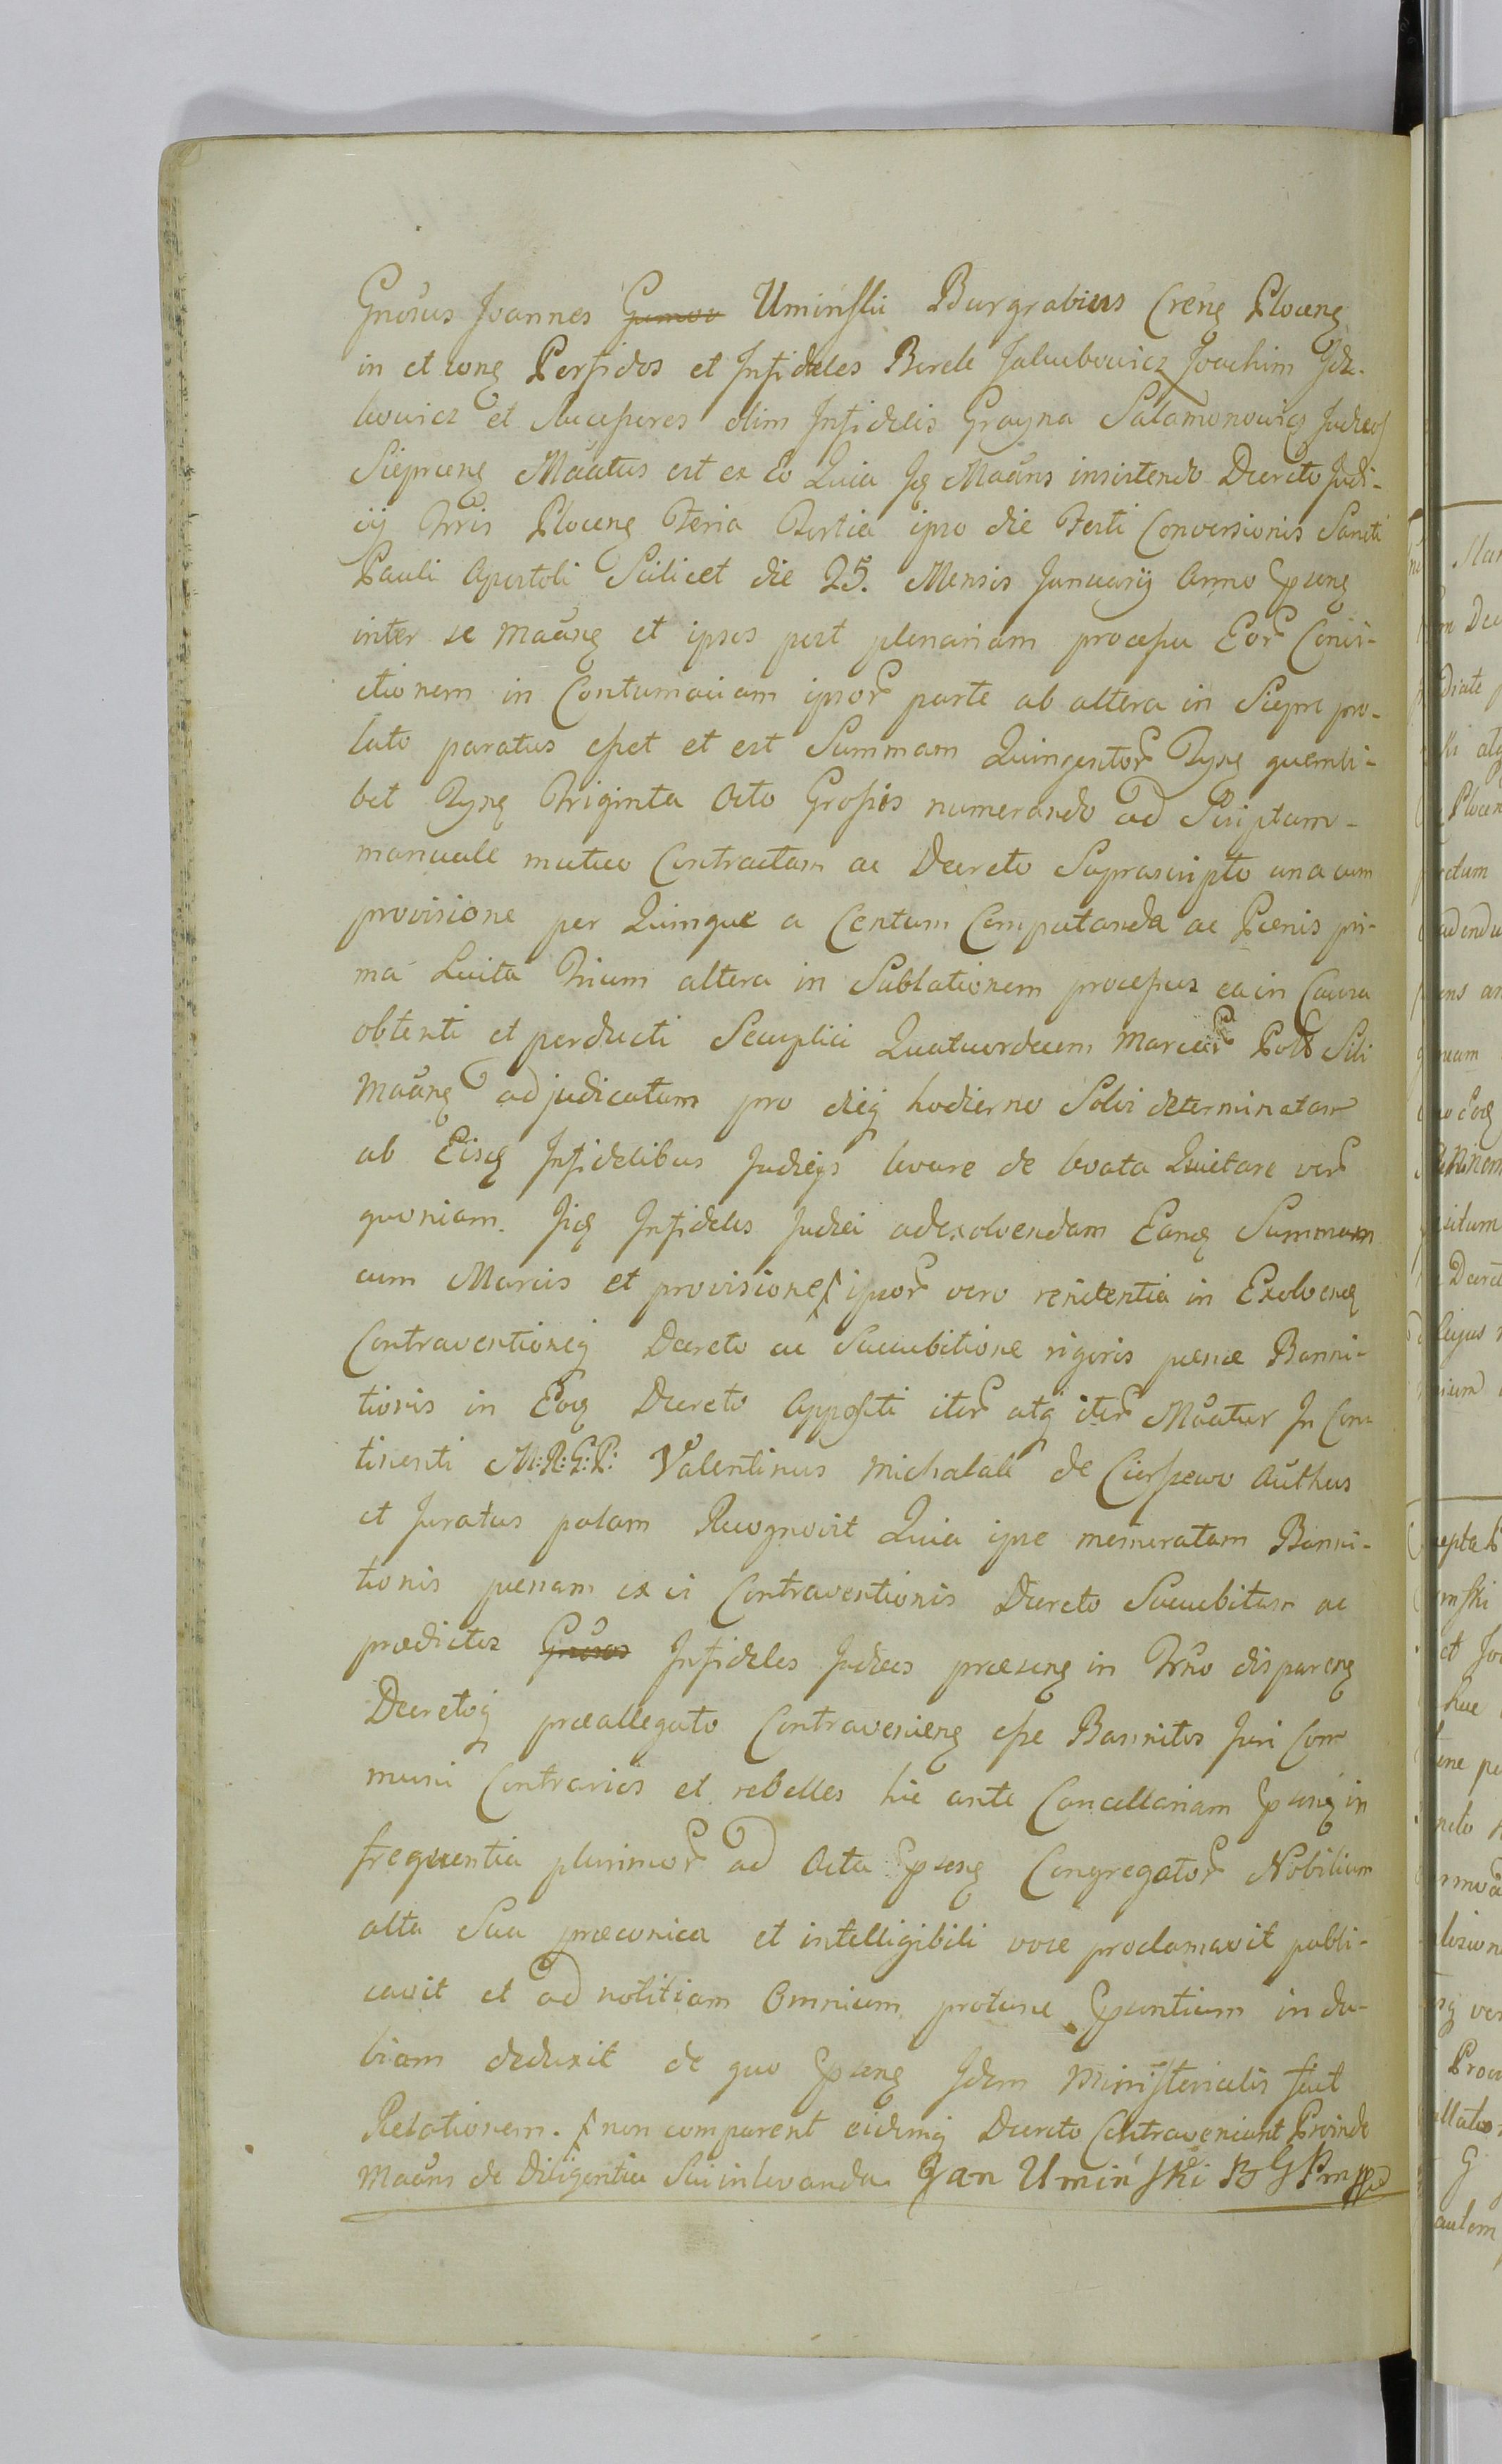 Gnosus Joannes Uminski Burgrabius Crens Plocens
in et cons Perfidos et Infideles Berek Jakubowicz Joachim Icz-
kowicz et Successores olim Infidelis Grayna Salamonowicz Judæos
Sieprcens Maatus est ex Eo Quia Is Maans insistendo Decreto Judi-
cij Trris Plocens Feria Tertia ipso die Festi Conversionis Sancti
Pauli Apostoli Scilicet die 25. Mensis Januarij Anno Pssens
inter se Maans et ipsos post plenariam processu Eor Convi-
ctionem in Contumaciam ipsor parte ab altera in Sieprc pro-
lato paratus esset et est Summam Quingentor Tyns quemli-
bet Tyns Triginta Octo Grossis numerando ad Scriptam-
manuale mutuo Contractam ac Decreto Suprascripto una cum
provisione per Quinque a Centum Computanda ac Pœnis pri-
ma Luita Trium altera in Sublationem processus ea in Causa
obtenti et perducti Seuplici Quatuordecem Marcar Poll Sibi
Maans adjudicatam pro dieq hodierno Solvi determinatam
ab Eisd Infidelibus Judæis levare de levata Quietare ver
quoniam Iid Infideles Judæi adexolvendam Eand Summam
cum Marcis et provisione ipsor vero renitentia in Exolvend
Contraventioneq Decreto ac Succubitione rigoris pœnæ Banni-
tionis in Eod Decreto Appositi iter atq iter Maatur In Con-
tinenti M:R:G:P: Valentinus Michalak de Cierszewo Authus
et Juratus palam Recognovit Quia ipse memoratam Banni-
tionis pœnam ex vi Contraventionis Decreto Succubitam ac
prædictos Gnosos Infideles Judæos præsens in Trno disparens
Decretoq præallegato Contraveniens esse Bannitos Juri Com
muni Contrarios et rebelles hic ante Cancellariam Pssens in
frequentia plurimor ad Acta Pssens Congregator Nobilium
alta Sua præconica et intelligibili voce proclamavit publi-
cavit et ad notitiam Omnium protunc Pssentium indu-
biam deduxit de quo Pssens Idem Ministerialis fecit
Relationem. non comparent eidemq Decreto Contraveniunt Proinde
Maans de Diligentia Sui in levanda Jan Uminski B G P mpp